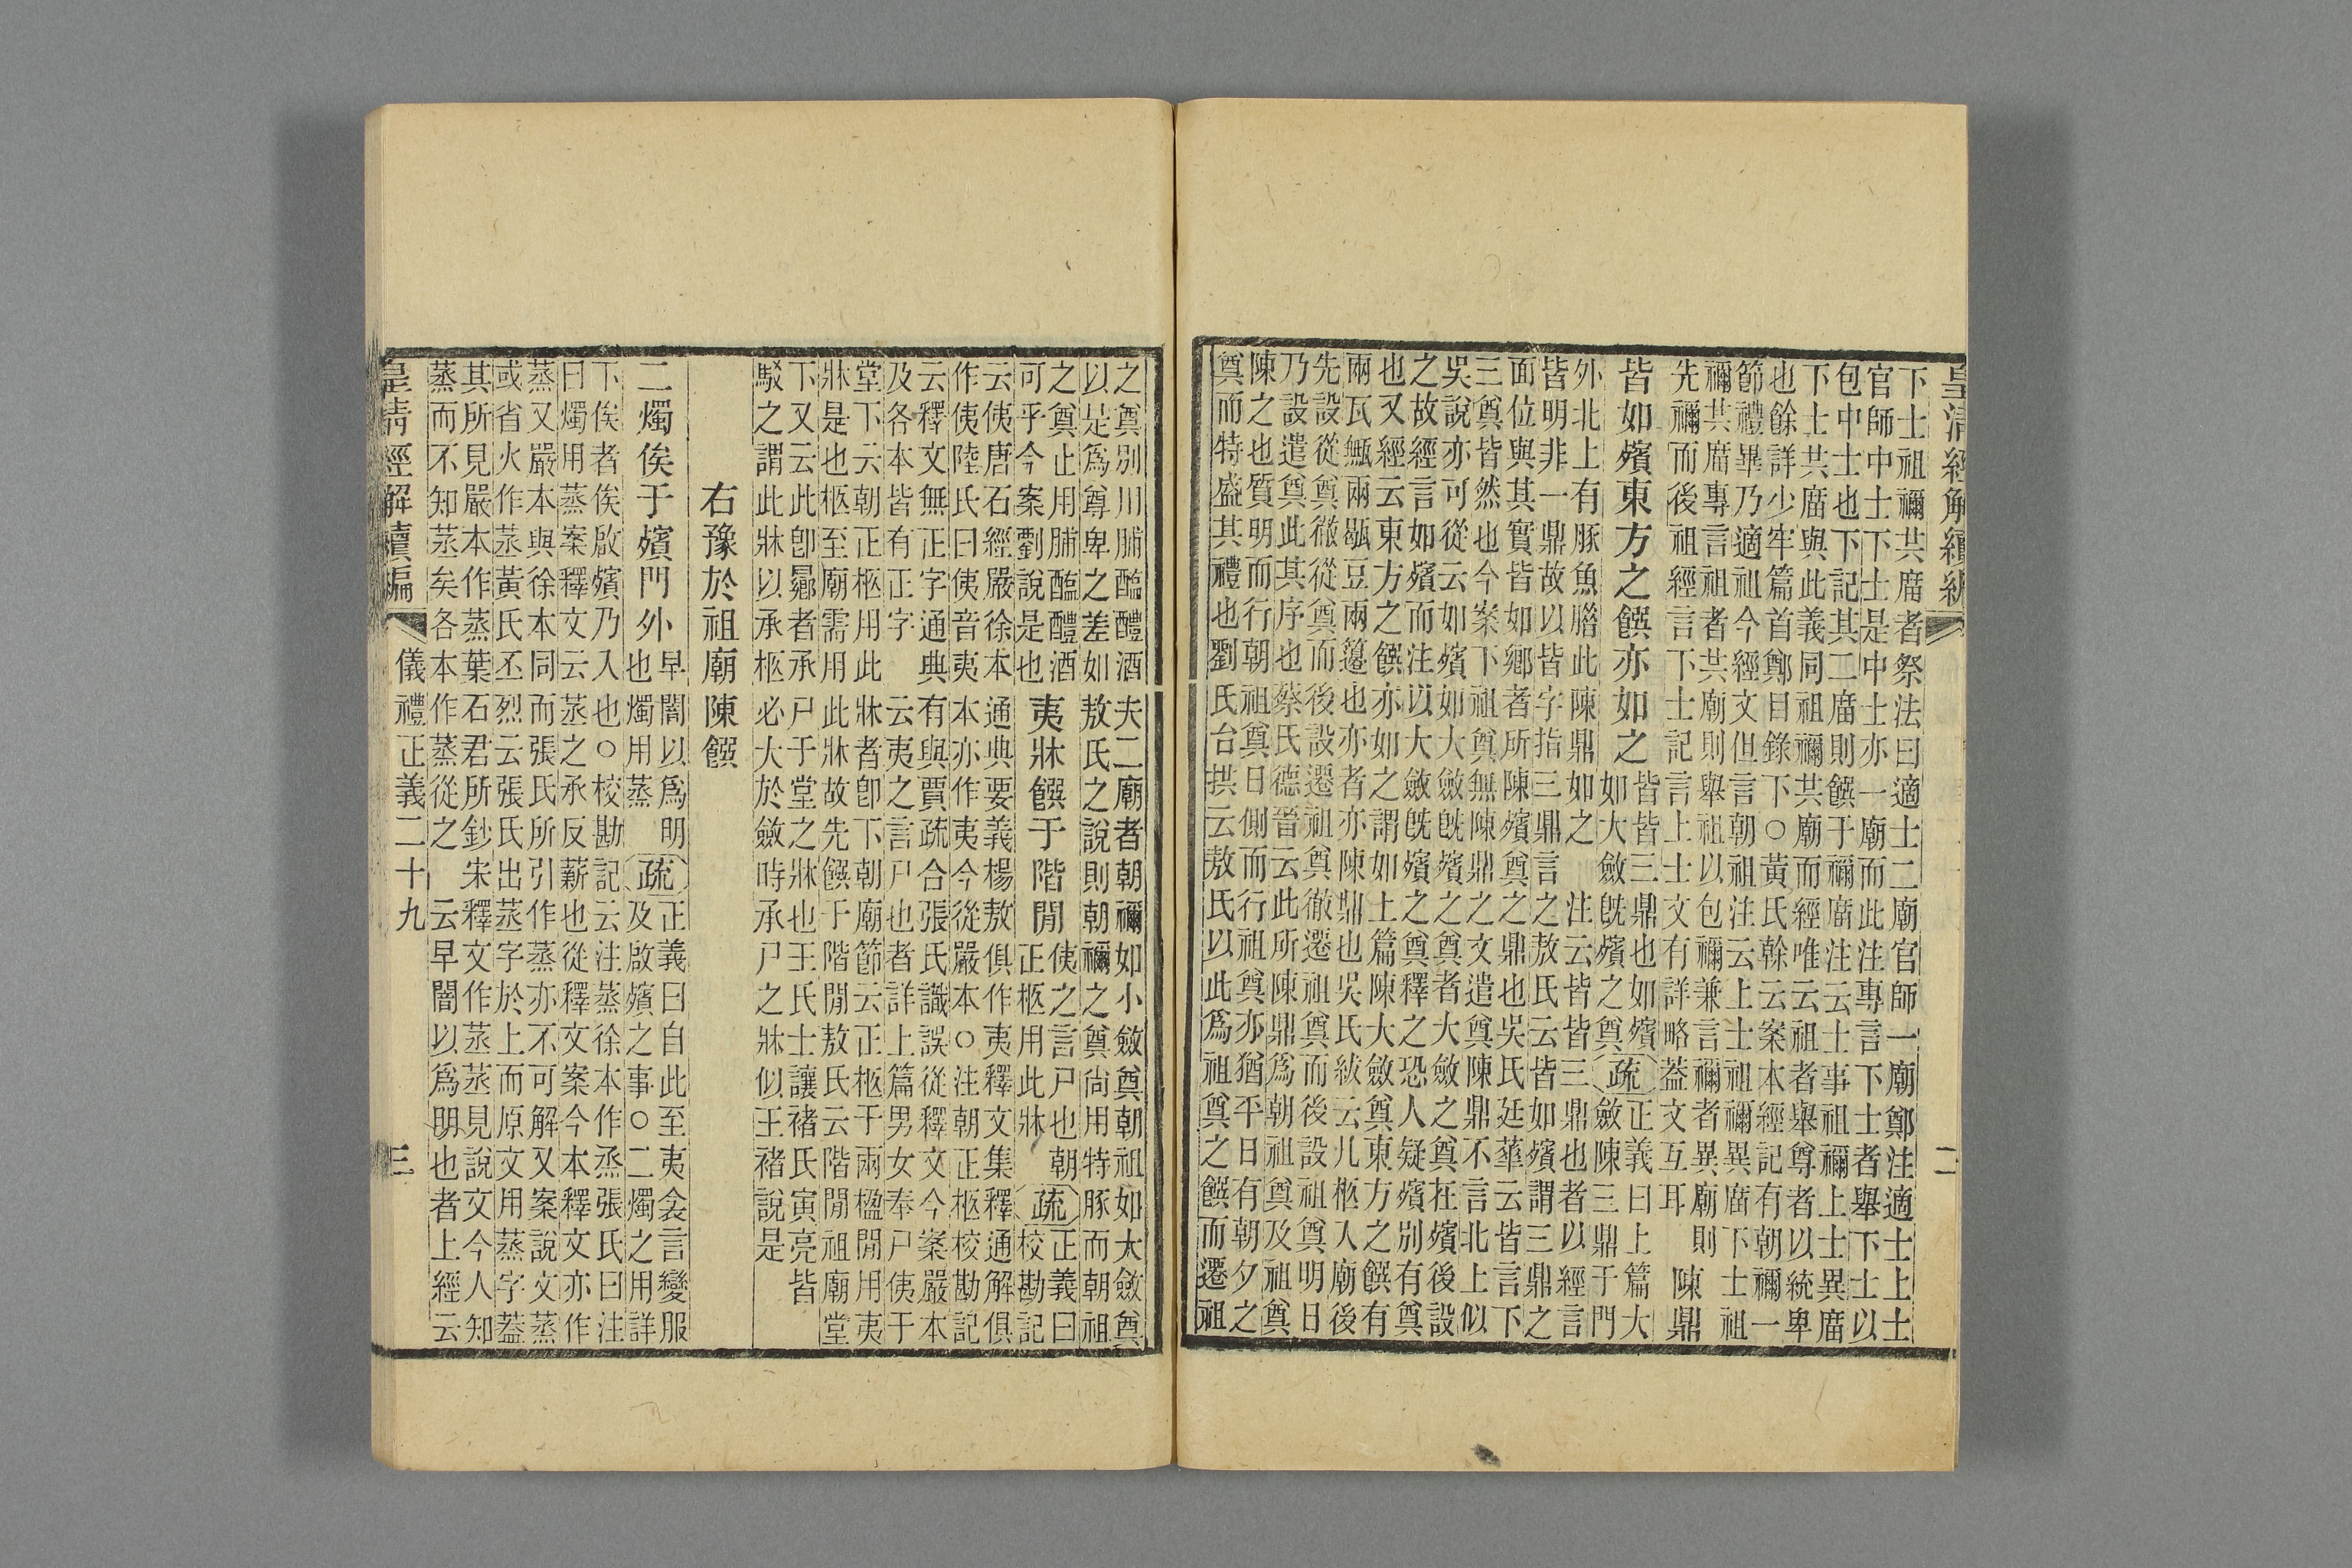 皇清經解續編
二
下士祖禰共庿者祭法曰適士二廟官師一廟鄭注適士上士
官師中士下士是中士亦一廟而此注專言下士者舉下士以
包中士也下記其二庿則饌于禰庿注云士事祖禰上士異庿
下士共庿與此義同祖禰共廟而經唯云祖者舉尊者以統卑
也餘詳少牢篇首鄭目錄下○黃氏榦云案本經記有朝禰一
節禮畢乃適祖今經文但言朝祖注云上士祖禰異庿下士祖
禰共庿專言祖者共廟則舉祖以包禰兼言禰者異廟則
先禰而後祖經言下士記言上士文有詳略葢文互耳
陳鼎
皆如殯東方之饌亦如之
皆皆三鼎也如殯
如大斂旣殯之奠
疏
正義曰上篇大
斂陳三鼎于門
外北上有豚魚腊此陳鼎如之注云皆皆三鼎也者以經言
皆明非一鼎故以皆字指三鼎言之敖氏云皆如殯謂三鼎之
面位與其實皆如鄉者所陳殯奠之鼎也吳氏廷華云皆言下
三奠皆然也今案下祖奠無陳鼎之文遣奠陳鼎不言北上似
吳說亦可從云如殯如大斂旣殯之奠者大斂之奠在殯後設
之故經言如殯而注以大斂旣殯之奠釋之恐人疑殯別有奠
也又經云東方之饌亦如之謂如上篇陳大斂奠東方之饌有
兩瓦甒兩毼豆兩籩也亦者亦陳鼎也吳氏紱云凡柩入廟後
先設從奠徹從奠而後設遷祖奠徹遷祖奠而後設祖奠明日
乃設遣奠此其序也蔡氏德晉云此所陳鼎爲朝祖奠及祖奠
陳之也質明而行朝祖奠日側而行祖奠亦猶平日有朝夕之
奠而特盛其禮也劉氏台拱云敖氏以此爲祖奠之饌而遷祖
之奠別用脯醢醴酒夫二廟者朝禰如小斂奠朝祖如大斂奠
以是爲尊卑之差如敖氏之說則朝禰之奠尚用特豚而朝祖
之奠止用脯醢醴酒
可乎今案劉說是也
夷牀饌于階閒
侇之言尸也朝
正柩用此牀
疏
正義曰
校勘記
云侇唐石經嚴徐本通典要義楊敖俱作夷釋文集釋通解俱
作侇陸氏曰侇音夷本亦作夷今從嚴本○注朝正柩校勘記
云釋文無正字通典有與賈疏合張氏識誤從釋文今案嚴本
及各本皆有正字云夷之言尸也者詳上篇男女奉尸侇于
堂下云朝正柩用此牀者卽下朝廟節云正柩于兩楹閒用夷
牀是也柩至廟需用此牀故先饌于階閒敖氏云階閒祖廟堂
下又云此卽曏者承尸于堂之牀也王氏士讓褚氏寅亮皆
駁之謂此牀以承柩必大於斂時承尸之牀似王褚說是
右豫於祖廟陳饌
二燭俟于殯門外
早闇以爲明
也燭用蒸
疏
正義曰自此至夷衾言變服
及啟殯之事○二燭之用詳
下俟者俟啟殯乃入也○校勘記云注蒸徐本作烝張氏曰注
曰燭用蒸案釋文云蒸之承反薪也從釋文案今本釋文亦作
蒸又嚴本與徐本同而張氏所引作蒸亦不可解又案說文蒸
或省火作𦯏黃氏丕烈云張氏出蒸字於上而原文用蒸字葢
其所見嚴本作蒸葉石君所鈔宋釋文作烝烝見說文今人知
蒸而不知烝矣各本作蒸從之云早闇以爲明也者上經云
皇淸經解續編
儀禮正義二十九
三